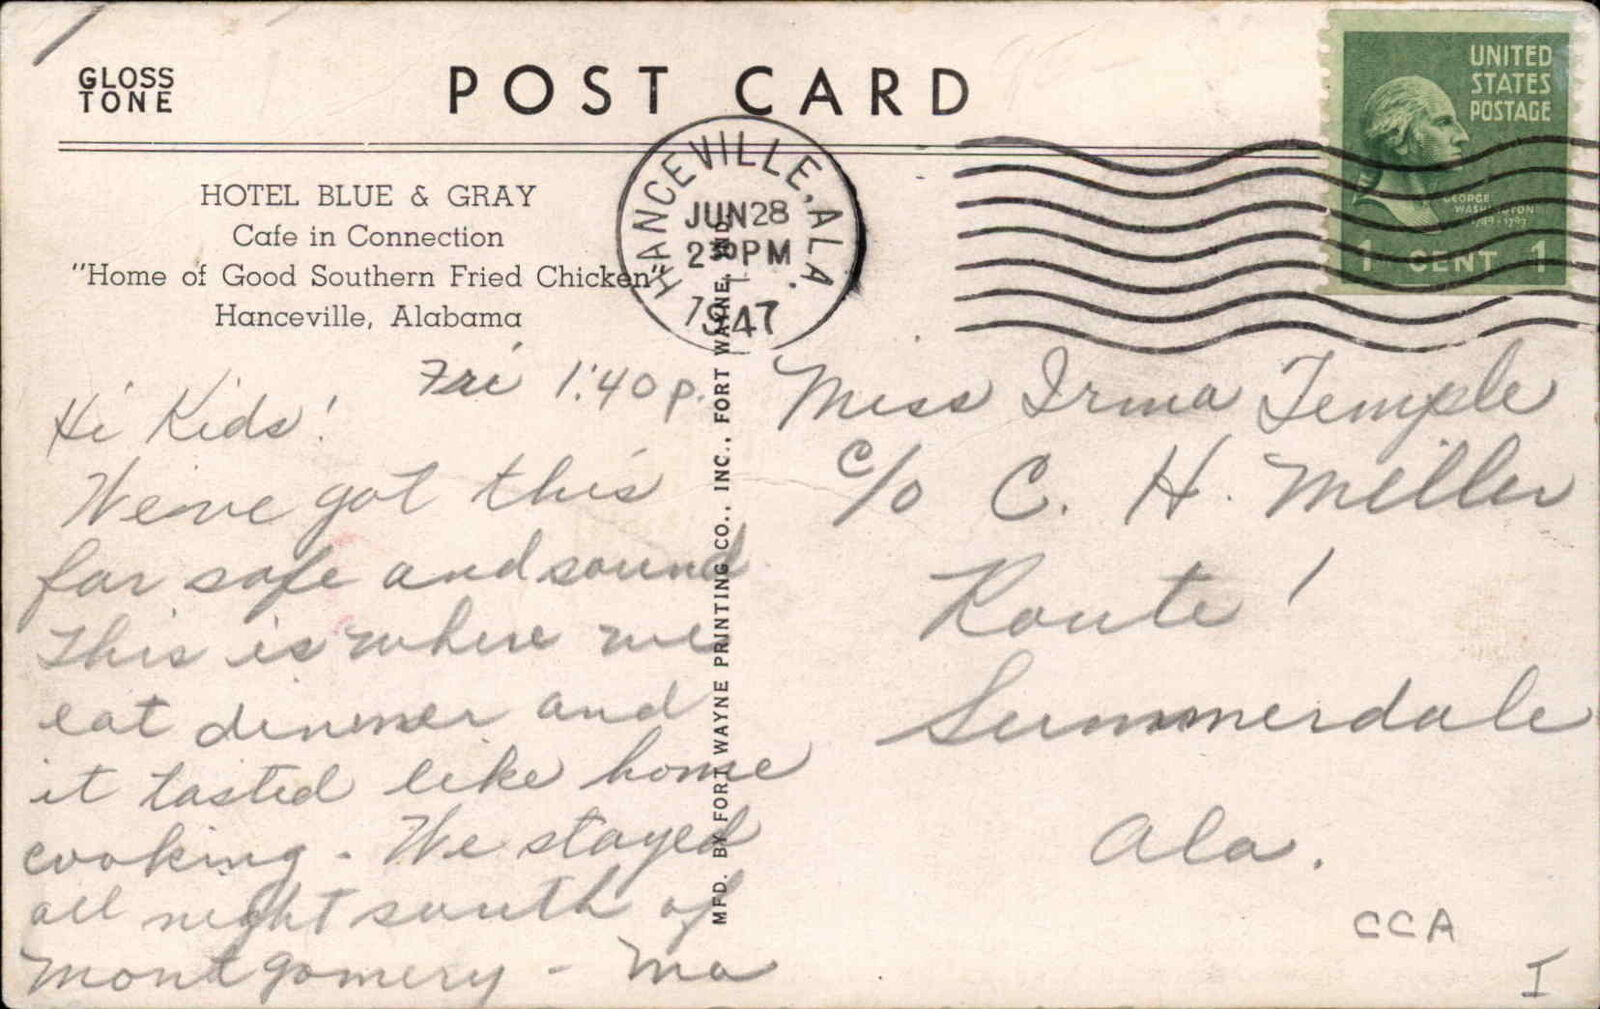 GLOSS
TONE
POST CARD
UNITED
STATES
POSTAGE
GEORGE
WASHINGTON
1 CENT 1
HANCEVILLE, ALA.
JUN 28
2 30 PM
1947
HOTEL BLUE & GRAY
Cafe in Connection
"Home of Good Southern Fried Chicken"
Hanceville, Alabama
Fri 1:40 p.
Hi Kids!
We've got this
far safe and sound
This is where we
eat dinner and
it tasted like home
cooking. We stayed
all night south of
Montgomery - Ma
MFD. BY FORT WAYNE PRINTING CO., INC., FORT WAYNE, IND.
Miss Irma Temple
c/o C. H. Miller
Route 1
Summerdale
Ala.
CCA
I